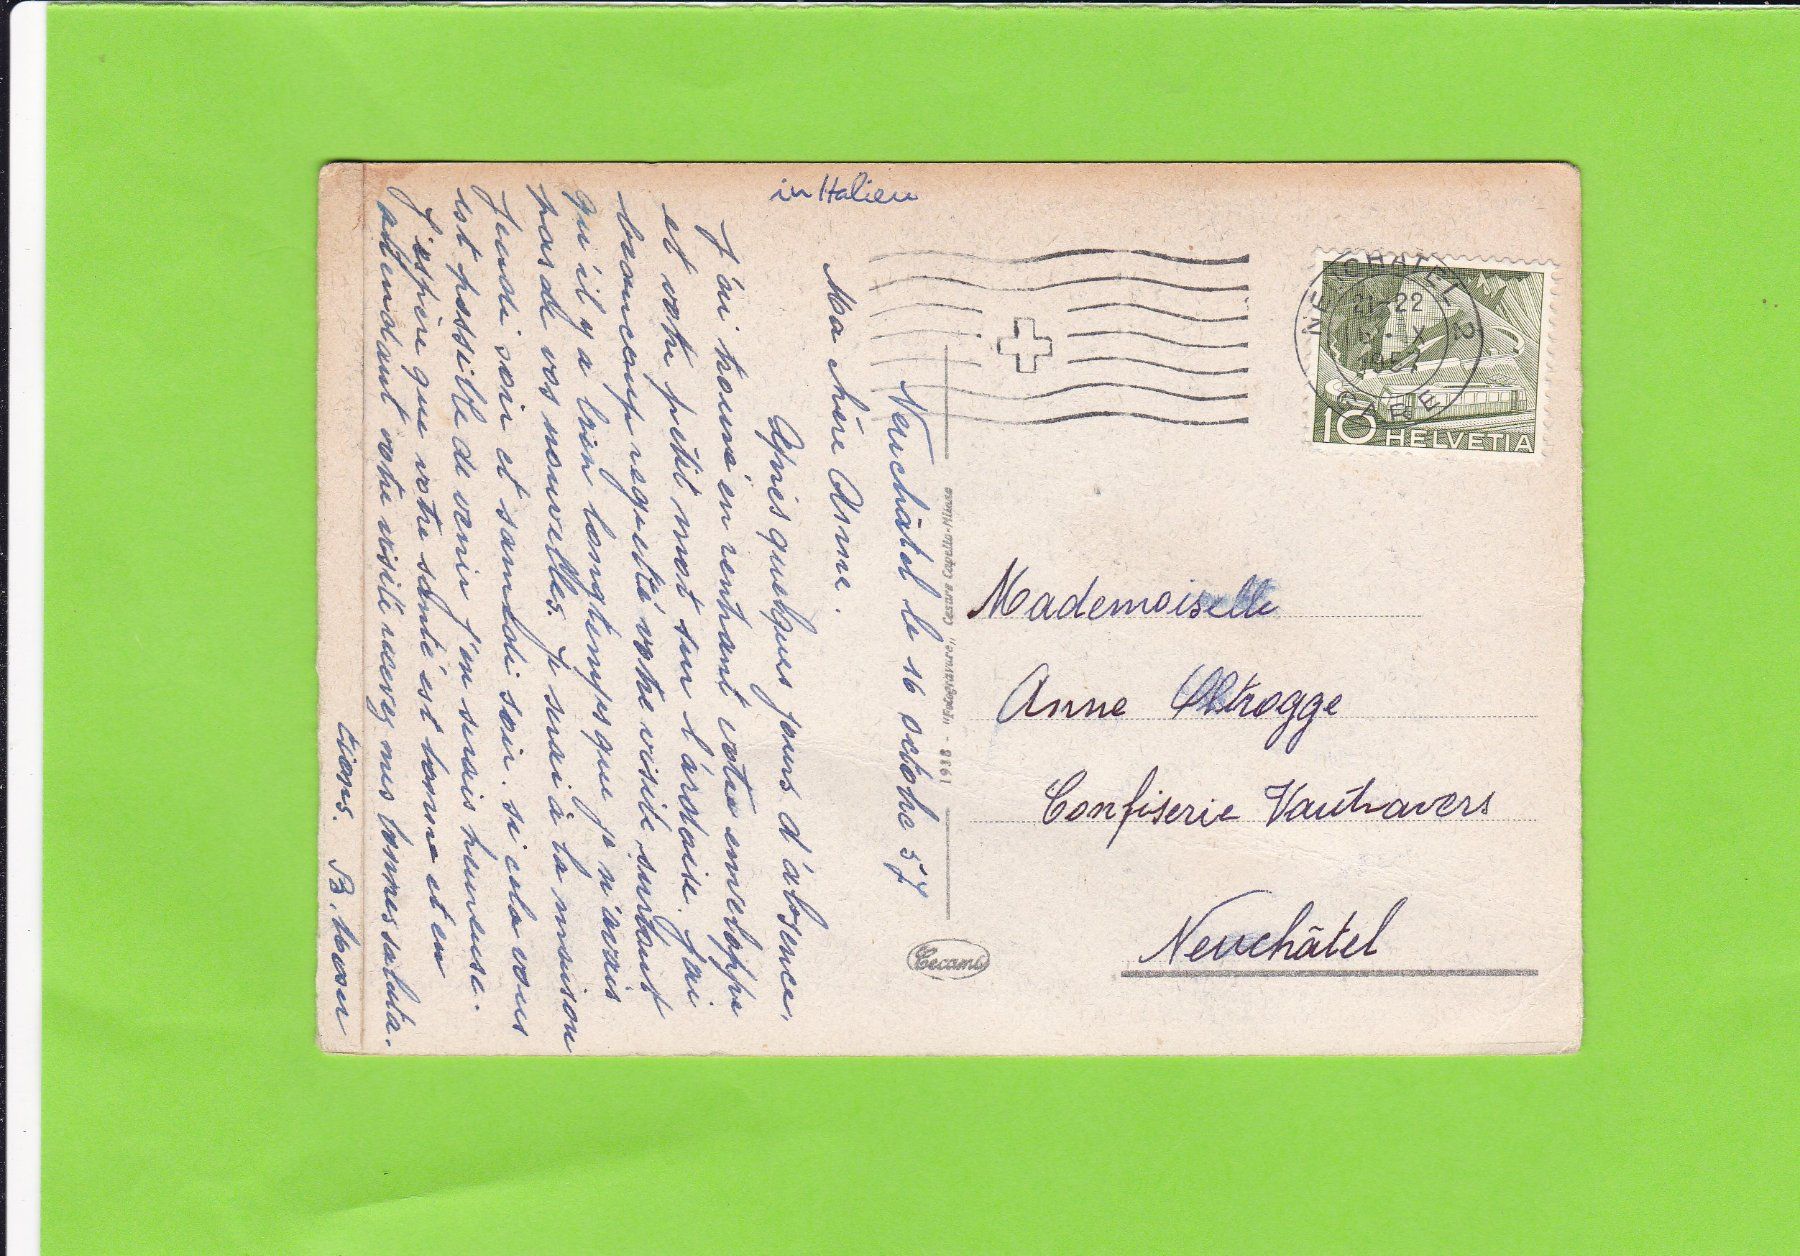 in Italien
Neuchâtel le 16 octobre 57
Ma chère Anne.
Après quelques jours d'absence,
j'ai trouvé en rentrant votre enveloppe
et votre petit mot sur l'ardoise. J'ai
beaucoup regretté votre visite surtout
qu'il y a bien longtemps que je n'avais
pas de vos nouvelles. Je serai à la maison
jeudi soir et samedi soir. si cela vous
est possible de venir j'en serais heureuse.
J'espère que votre santé est bonne et en
attendant votre visite recevez mes bonnes saluta-
tions. B. Moser
1938 - "Fotogravure" Cesare Capello-Milano
Cecami
NEUCHATEL 2
21-22
16. X
1957
GARE
10 HELVETIA
Mademoiselle
Anne Altrogge
Confiserie Vautravers
Neuchâtel